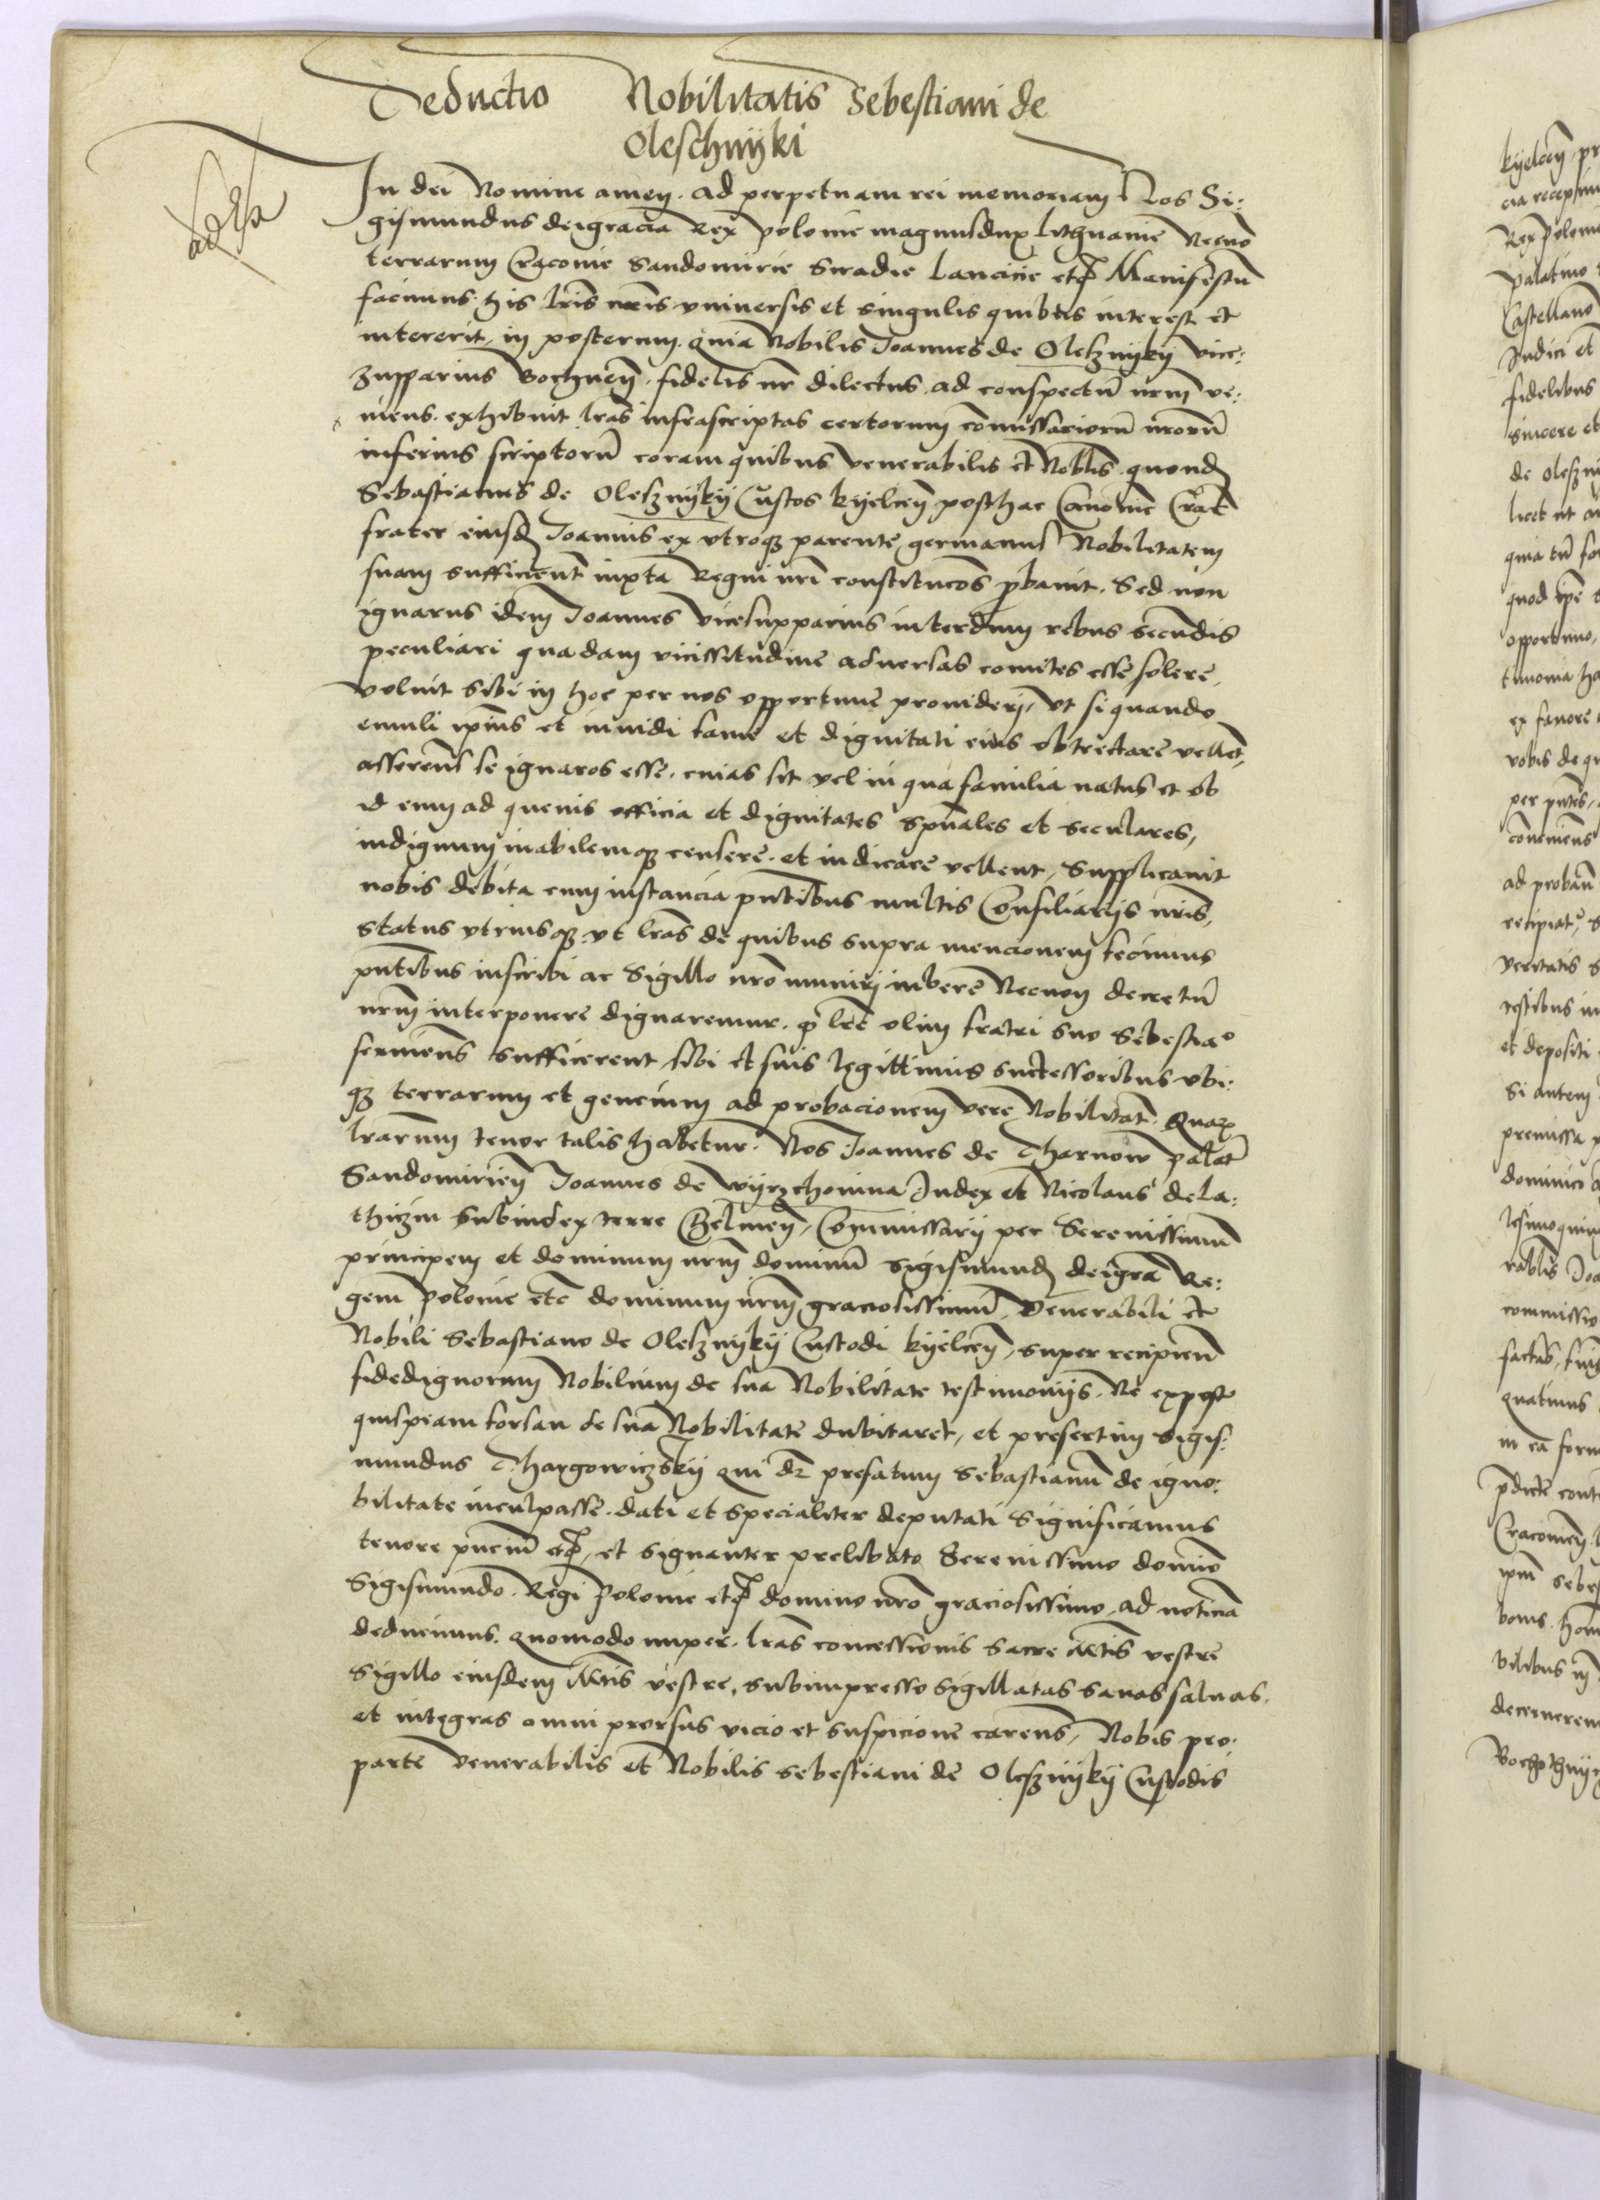 Deductio Nobilitatis Sebestiani de
Oleschnÿki
In dei Nomine amen. ad perpetuam rei memoriam Nos Si:
gismundus deigracia Rex polonie magnusdux lithuanie Necnō
terrarum Cracouie Sandomirie Siradie Lancicie etc Manifestū
facimus his lrīs nrīs vniuersis et singulis quibus interest et
intererit, in posterum. quia Nobilis Joannes de Olesznÿkÿ vice:
zupparius Bochneñ. fidelis nr̄ dilectus. ad conspectū nrm̄ ve:
niens. exhibuit lrās infrascriptas certorum cōmissariorū nrorū
inferius scriptorū coram quibus venerabilis et Noblis quond
Sebastianus de Olesznÿkÿ Custos kÿelceñ posthac Canonic Crac
frater eiusd Joannis ex vtroque parente germanus Nobilitatem
suam sufficient iuxta Regni nri constitucōs pbauit. Sed non
ignarus idem Joannes vicesupparius interdum rebus secundis
peculiari quadam vicissitudine aduersas comites esse solere,
voluit sibi in hoc per nos opportune prouideri, vt si quando
emuli ipius et inuidi fame et dignitati eius obtrectare vellet,
asserens se ignaros esse. cuias sit vel in qua familia natus et ob
id eum ad queuis officia et dignitates spuales et seculares,
indignum inabilemque censere. et indicare vellent, Supplicauit
nobis debita cum instancia pntibus multis Consiliarijs nris,
status vtriusque vt lrās de quibus supra mencionem fecimus
pntibus inscribi ac Sigillo nro muniri iubere Necnon decretū
nrm̄ interponere dignaremur. q lrē olim fratri suo Sebestiao
seruiens sufficerent sibi et suis legittimis successoribus vbi:
que terrarum et gencium ad probacionem vere Nobilitat. Quarum
lrarum tenor talis habetur. Nos Joannes de Tharnow palat
Sandomirieñ Joannes de wÿrzchouina Judex et Nicolaus de la:
thiczin Subiudex terre Chelmeñ, Commissarij per Serenissimū
principem et dominum nrm̄ dominū Sigismund deigra Re:
gem polonie etc dominum nrm̄ graciosissimū, Venerabili et
Nobili Sebastiano de Olesznÿkÿ Custodi kÿelceñ, super recipien
fidedignorum Nobilium de sua Nobilitate testimonijs. Ne expost
quispiam forsan de sua Nobilitate dubitaret, et presertim Sigis:
mundus Thargowiczskÿ qui dr prefatum Sebastianū de igno:
bilitate inculpasse. dati et specialiter deputati Significamus
tenore pncm̄ etc, et signanter prelibato Serenissimo domīo
Sigismundo. Regi Polonie etc domino nro graciosissimo, ad noticiā
deducimus. quomodo nuper. lrās concessionis Sacre Mtis vestre
Sigillo eiusdem Mtis vestre, subimpresso Sigillatas sanas saluas.
et integras omni prorsus vicio et suspicione carens, Nobis pro.
parte venerabilis et Nobilis Sebestiani de Olesznÿkÿ Custodis